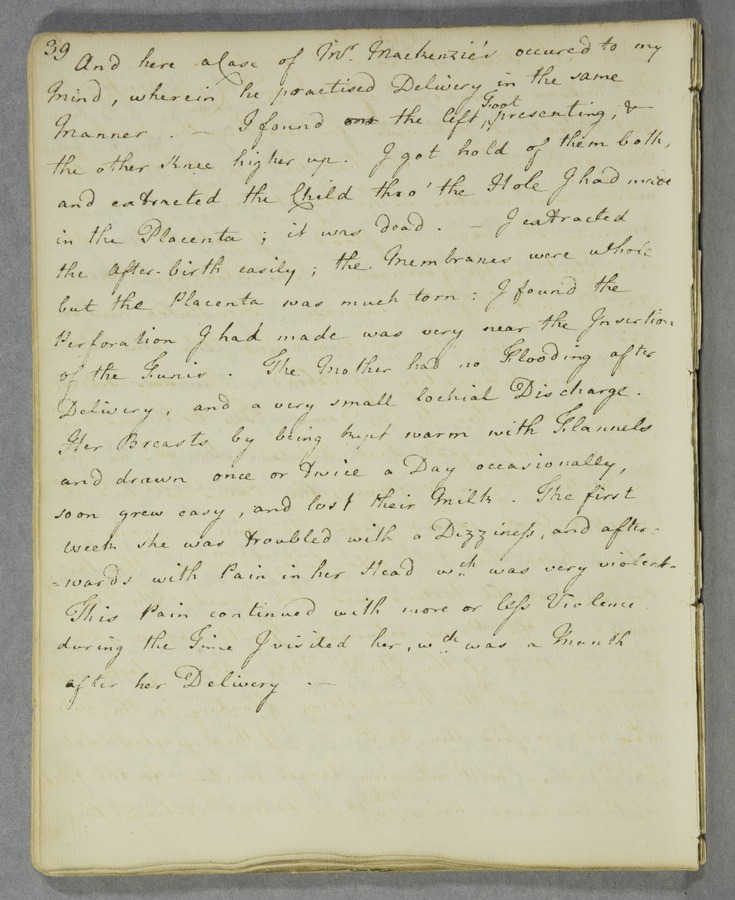 39
And here a Case of Mr. Mackenzie's occured to my
Mind, wherein he practised Delivery in the same
Manner. — I found one the left Foot presenting, &
the other Knee higher up. I got hold of them both,
and extracted the Child thro' the Hole I had made
in the Placenta; it was dead. — I extracted
the After-birth easily; the Membranes were whole
but the Placenta was much torn: I found the
Perforation I had made was very near the Insertion
of the Funis. The Mother had no Flooding after
Delivery, and a very small lochial Discharge.
Her Breasts by being kept warm with Flannels
and drawn once or twice a Day occasionally,
soon grew easy, and lost their Milk. The first
week she was troubled with a Dizziness, and after-
-wards with Pain in her Head wch. was very violent.
This Pain continued with more or less Violence
during the Time I visited her, wch. was a Month
after her Delivery —